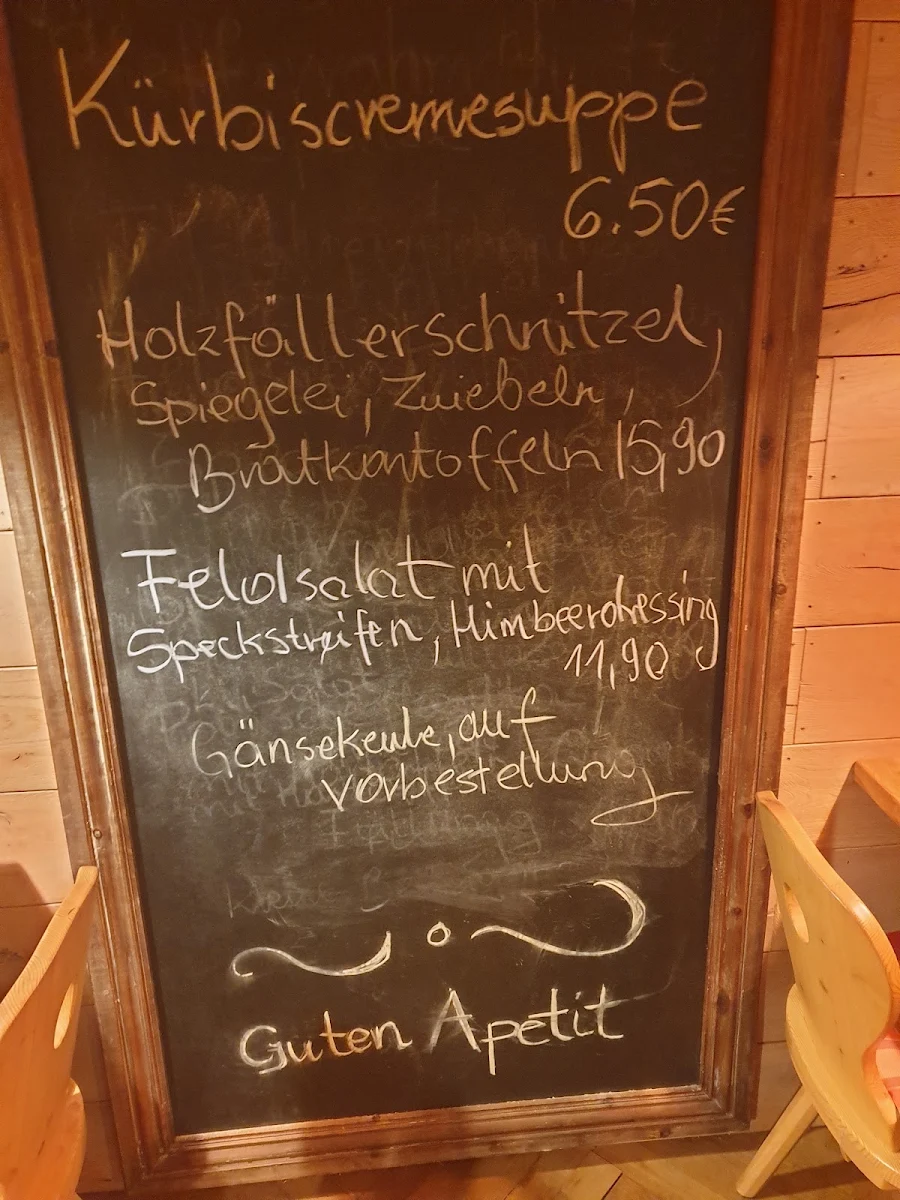 Kürbiscremesuppe
6.50€
Holzfällerschnitzel,
Spiegelei, Zwiebeln,
Bratkartoffeln 15,90
Feldsalat mit
Speckstreifen, Himbeerdressing
11,90
Gänsekeule, auf
vorbestellung
Guten Apetit